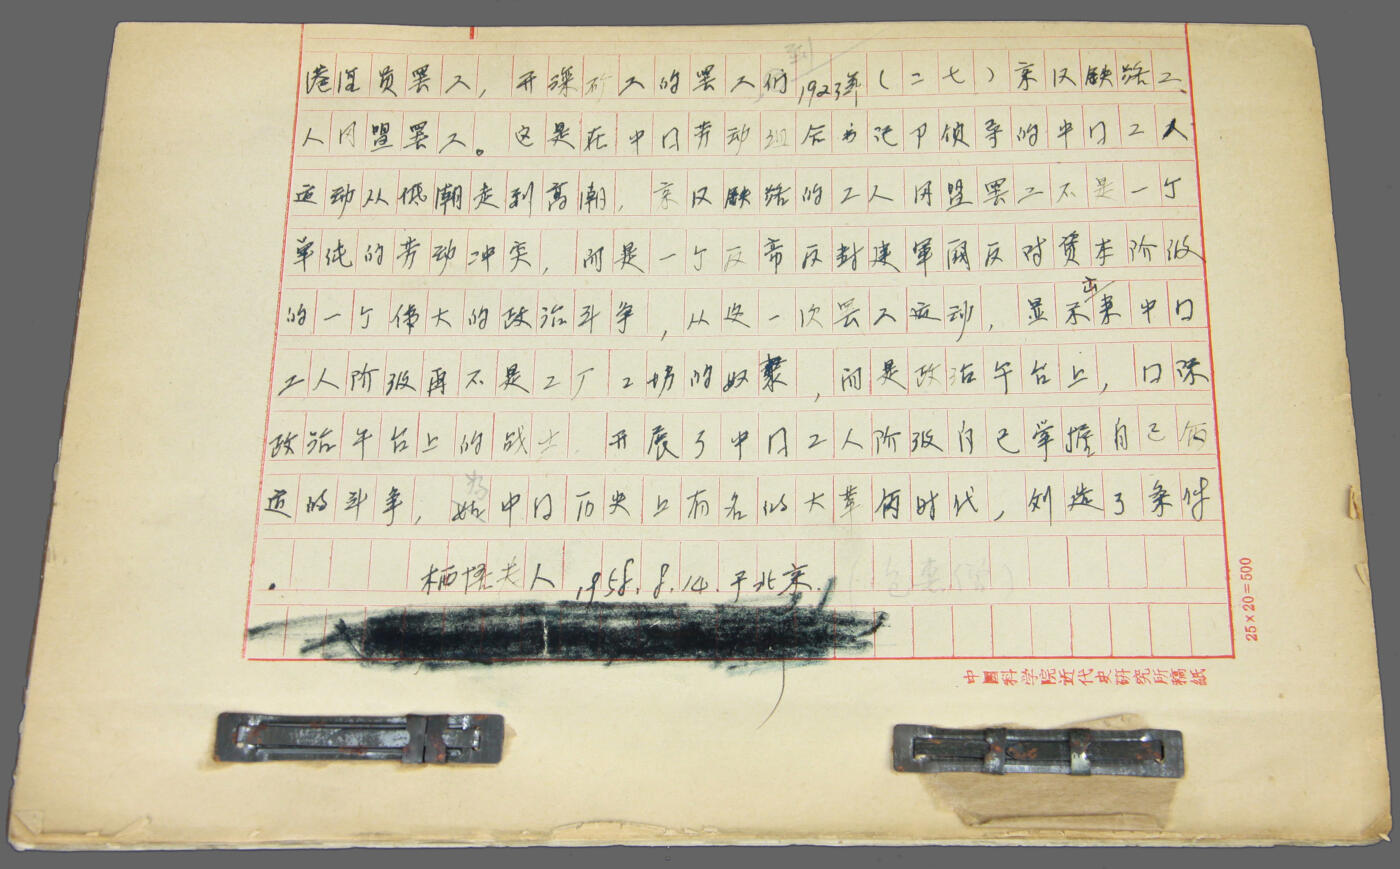 港海员罢工，开滦矿工的罢工到1923年（二七）京汉铁路工
人同盟罢工。这是在中囗劳动组合书记卩侦争的中囗工人
运动从低潮走到高潮，京汉铁路的工人同盟罢工不是一个
单纯的劳动冲突，而是一个反帝反封建军阀反对资本阶级
的一个伟大的政治斗争，从这一次罢工运动，显示出来中囗
工人阶级再不是工厂工场的奴隶，而是政治午台上，囗际
政治午台上的战士。开展了中囗工人阶级自己掌握自己命
运的斗争，为中囗历史上有名的大革命时代，创造了条件
. 栖梧老人 1958.8.14.于北京.
25×20=500
中国科学院近代史研究所稿紙